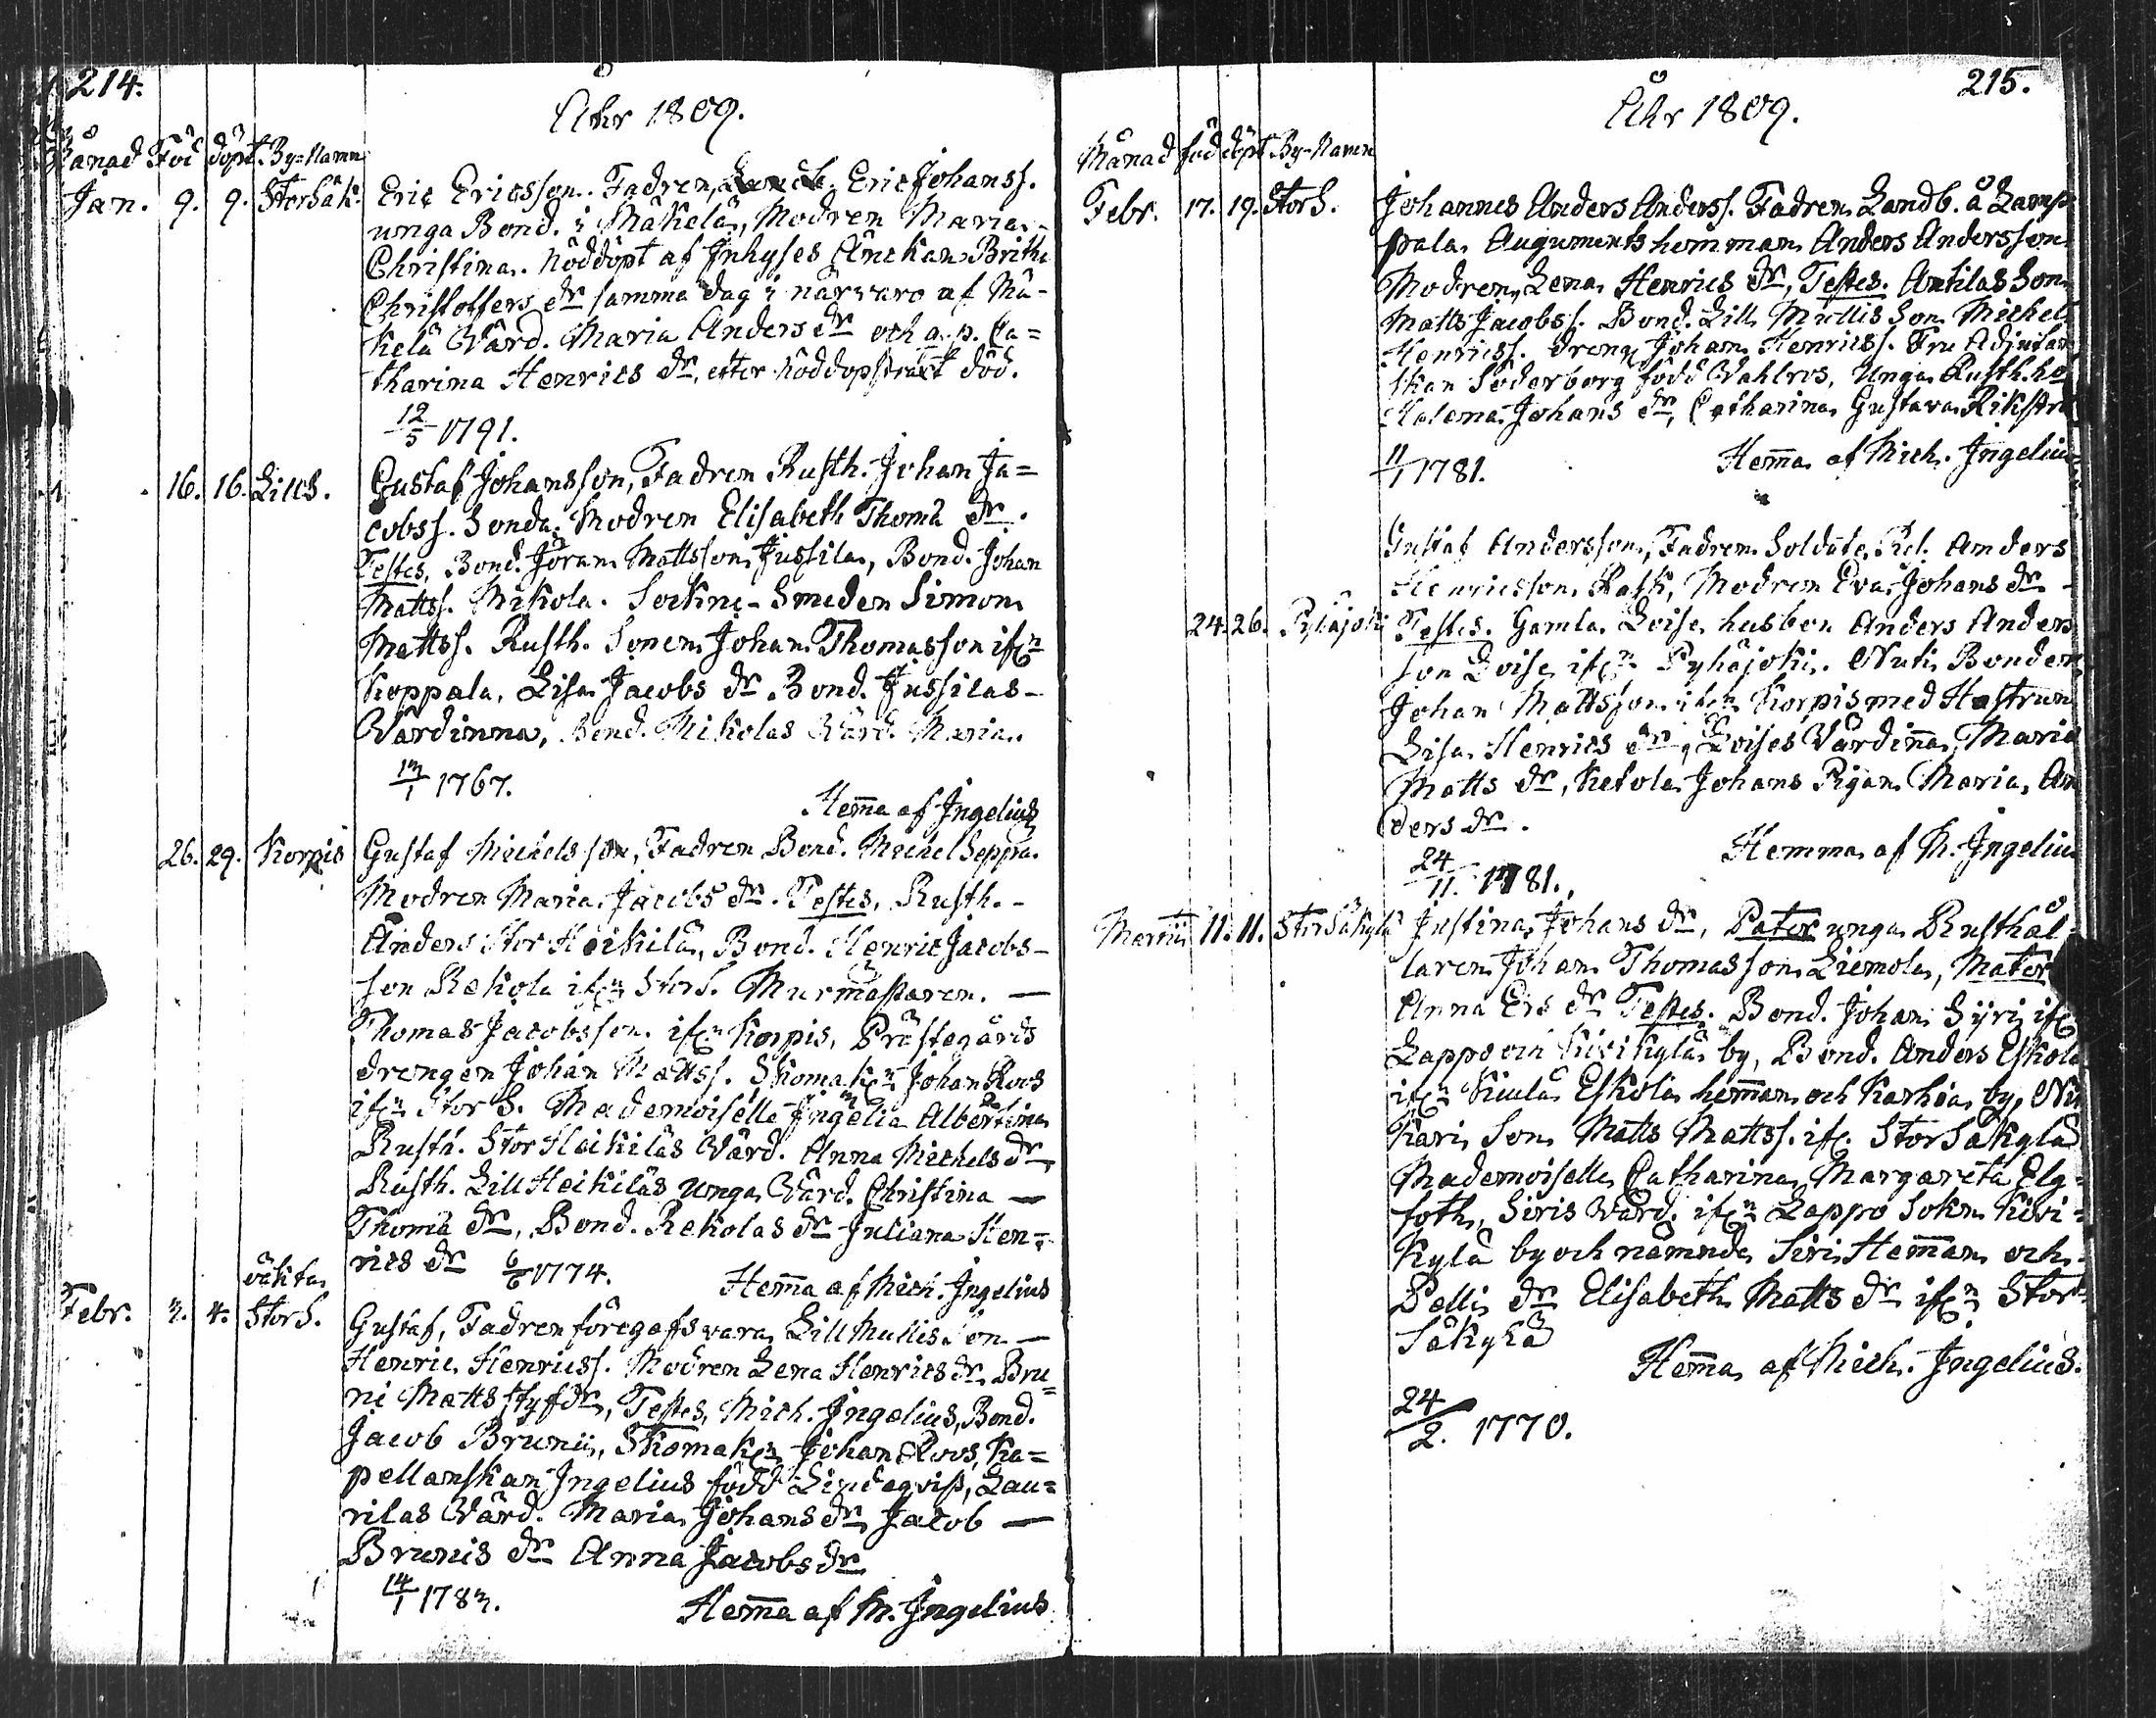 214.
Åhr 1809.
Månad Föd döpt. By=Namn
Jan. 9. 9. StorSäk. Eric Ericsson. Fadren, Eric Johanss.
unga Bond. i Mäkelä, Modren Maria
Christina. Nöddöpt af Inhyses Änckan Britha
Christoffers dr samma dag i närvaro af Mä-
kelä Värd. Maria Anders dr och a. p. Ca=
tharina Henrics dr, efter nöddopet strax död.
12/5 1791.
16. 16. LillS. Gustaf Johansson, Fadren Rusth. Johan Ja=
cobss. Sonda. Modren Elisabeth Thomä dr.
Testes, Bond. Jöran Mattsson Jussila, Bond. Johan
Mattss. Mikola. Sockne-Smeden Simon
Mattss. Rusth. Sonen Johan Thomasson ifrn
Koppala, Lisa Jacobs dr. Bond. Jussilas-
Värdinna, Bond. Mikolas Värd. Maria.
13/1 1767.
Hem̄a af Ingelius
26. 29. Korpis Gustaf Michelsson, Fadren Bond. Michel Seppä.
Modren Maria Jacobs dr. Testes, Rusth. -
Anders Stor Heikilä, Bond. Henric Jacobs-
son Rekola ifrn StorS. Murmästaren. —
Thomas Jacobsson ifrn Korpis, Prästegårds
drengen Johan Mattss. Skomakrn Johan Roos
ifrn Stor S. Mademoiselle Ingelia Albertina
Rusth. Stor Heikiläs Värd. Anna Michels dr,
Rusth. Lill Heikiläs unga Värd. Christina —
Thomä dr, Bond. Rekolas dr Juliana Hen-
rics dr 6/6 1774.
Hem̄a af Mich. Ingelius
oäkta
Febr. 3. 4. StorS. Gustaf, Fadren föregafs vara Lill Mullis Son —
Henric Henricss. Modren Lena Henrics dr Bru=
ni Matts styfdr, Testes, Mich. Ingelius, Bond.
Jacob Bruni, Skomakrn Johan Roos, Ka=
pellanskan Ingelius född Lindeqvist, Lau=
rilas Värd. Maria Johans dr Jacob —
Brunis dr Anna Jacobs dr
14/1 1783.
Hem̄a af M. Ingelius
215.
Åhr 1809.
Månad född döpt By-Namn
Febr. 17. 19. StorS. Johannes Anders Anderss. Fadren Landb. å Lamp
pala Auguments hemman Anders Andersson
Modren, Lena Henrics dr, Testes. Antilas Son
Matts Jacobss. Bond. Lill Mullis Son Michel
Henricss. dreng Johan Henricss. Fru Adjutan
skan Söderborg född Wahlros, Unga Rusth. ho
Kalema Johans dr, Catharina Gustava Rikstr
11/1 1781.
Hem̄a af Mich. Ingelius
Gustaf Andersson, Fadren Soldate Anders
Henricsson Rask, Modren Eva Johans dr -
24. 26. Pyhäjoki Testes. Gamla Loise husbon Anders Anders
son Loise ifrn Pyhäjoki. Nuti Bonden
Johan Mattsson ifrn Korpis med Hustrun
Lisa Henrics dr, Loises Värdinna, Maria
Matts dr, Ketola Johans Pigan Maria An
ders dr.
24/11. 1781.
Hemma af M. Ingelius
Martii 11. 11. StorSäkylä Justina Johans dr, Pater unga Rusthål=
laren Johan Thomasson Liemola, Mater
Anna Ers dr Testes. Bond. Johan Siri ifrn
Lappo och Kivikylä by, Bond. Anders Eskola
ifrn Kiula Eskola hem̄an och Karhia by,
Kari Son Matts Mattss. ifrn StorSäkylä
Mademoiselle Catharina Margareta Elg=
foth, Siris Värd. ifrn Lappo Sokn Kivi=
kylä by och nämnde Siri Hem̄an och
Pelli dr Elisabeth Matts dr ifrn Stor
Säkylä
Hem̄a af Mich. Ingelius.
24/2. 1770.